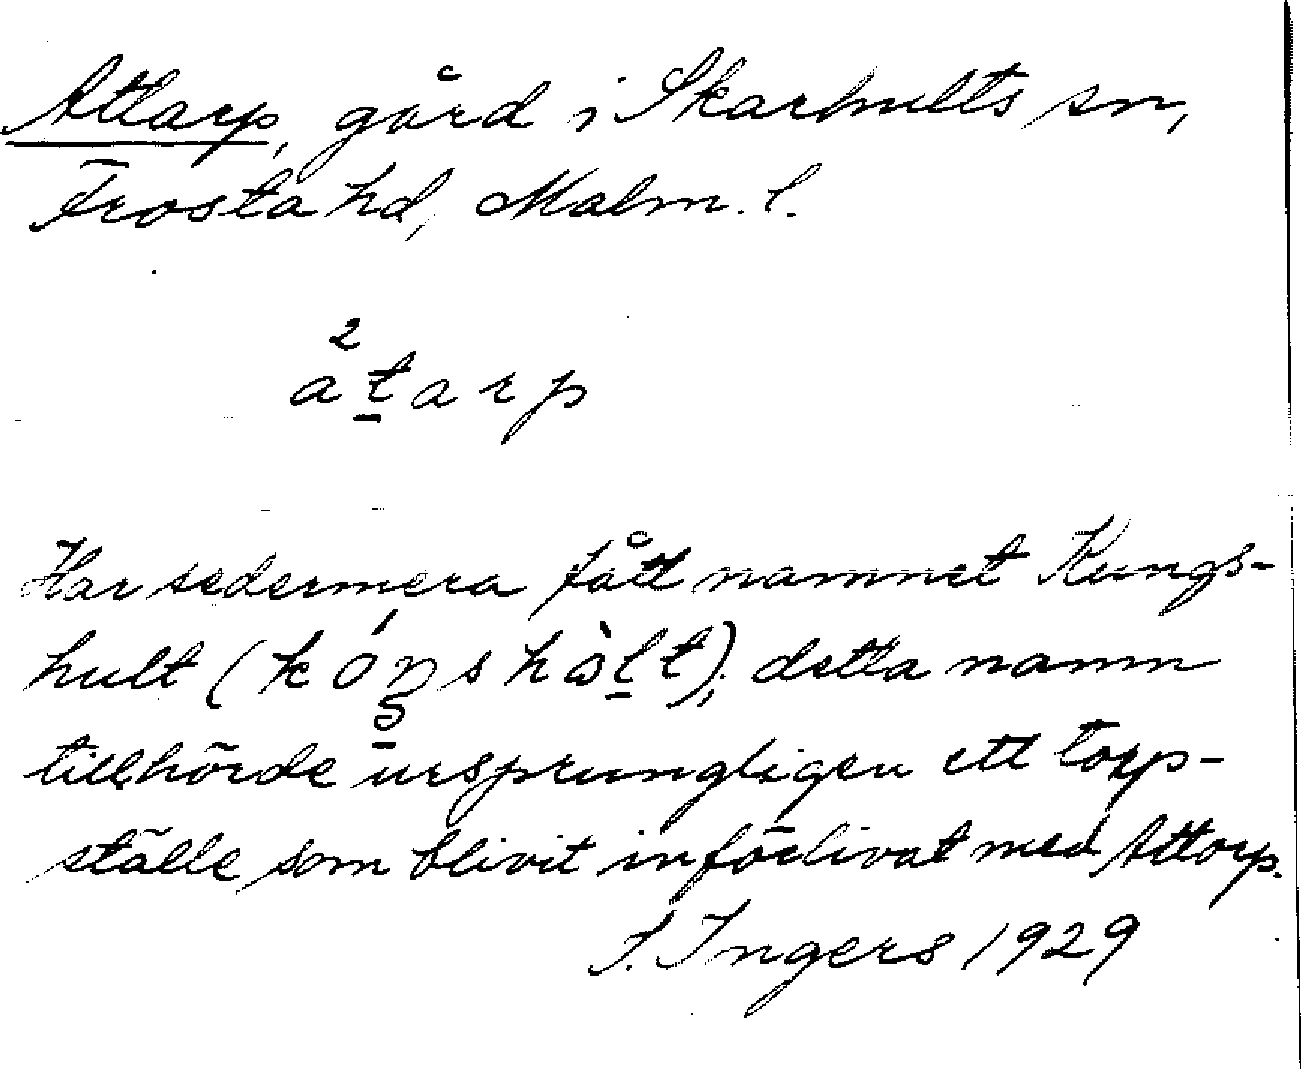 Attarp, gård i Skarhults sn,
Frosta hd, Malm. l.
a²t̲arp
Har sedermera fått namnet Kungs-
hult (kóŋshòl̲t); detta namn
tillhörde ursprungligen ett torp-
ställe som blivit införlivat med Attarp.
I. Ingers 1929